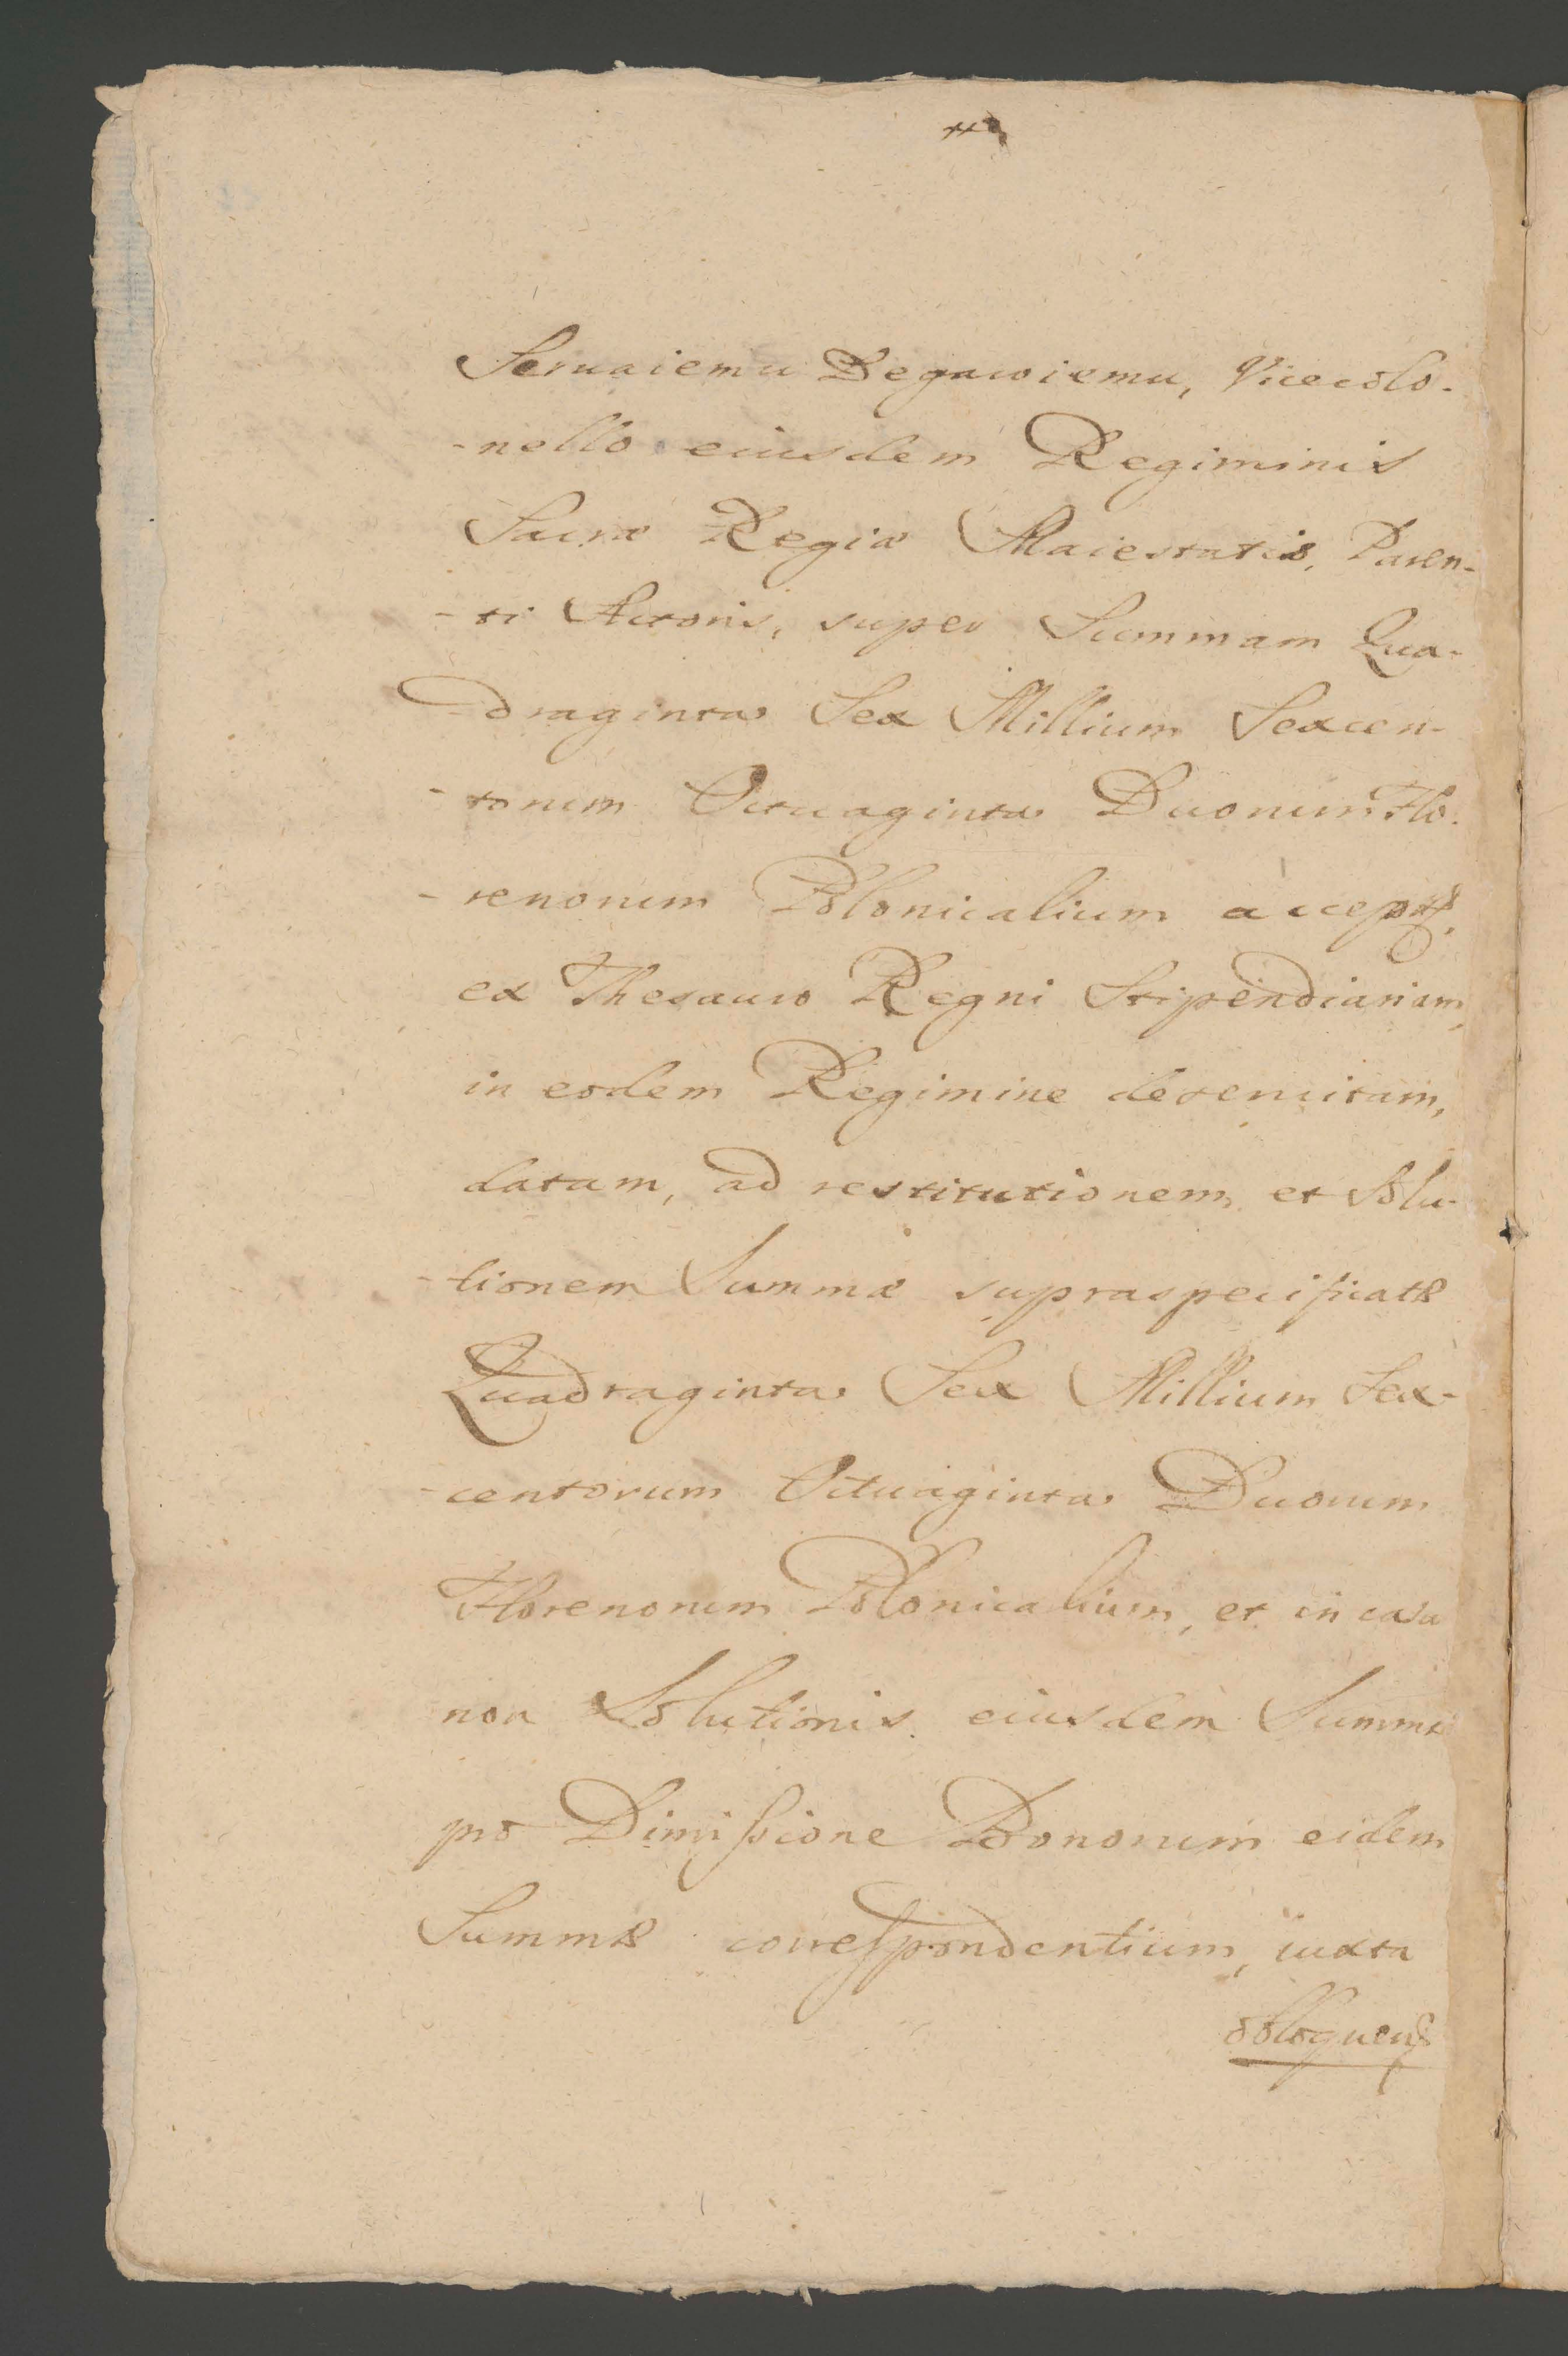 Seruaiemu Degawiemu, Vicecolo-
-nello eiusdem Regiminis
Sacræ Regiæ Maiestatis, Paren-
-ti Actoris, super Summam Qua-
-draginta Sex Millium Sexcen-
-torum Octuaginta Duorum Flo-
-renorum Polonicalium
ex Thesauro Regni Stipendiariam,
in eodem Regimine deservitam,
datam, ad restitutionem et Solu-
-tionem Summæ supraspecificatæ
Quadraginta Sex Millium Sex-
-centorum Octuaginta Duorum
Florenorum Polonicalium, et in casu
non Solutionis eiusdem Summæ
pro Dimissione Bonorum eidem
Summæ correspondentium, iuxta